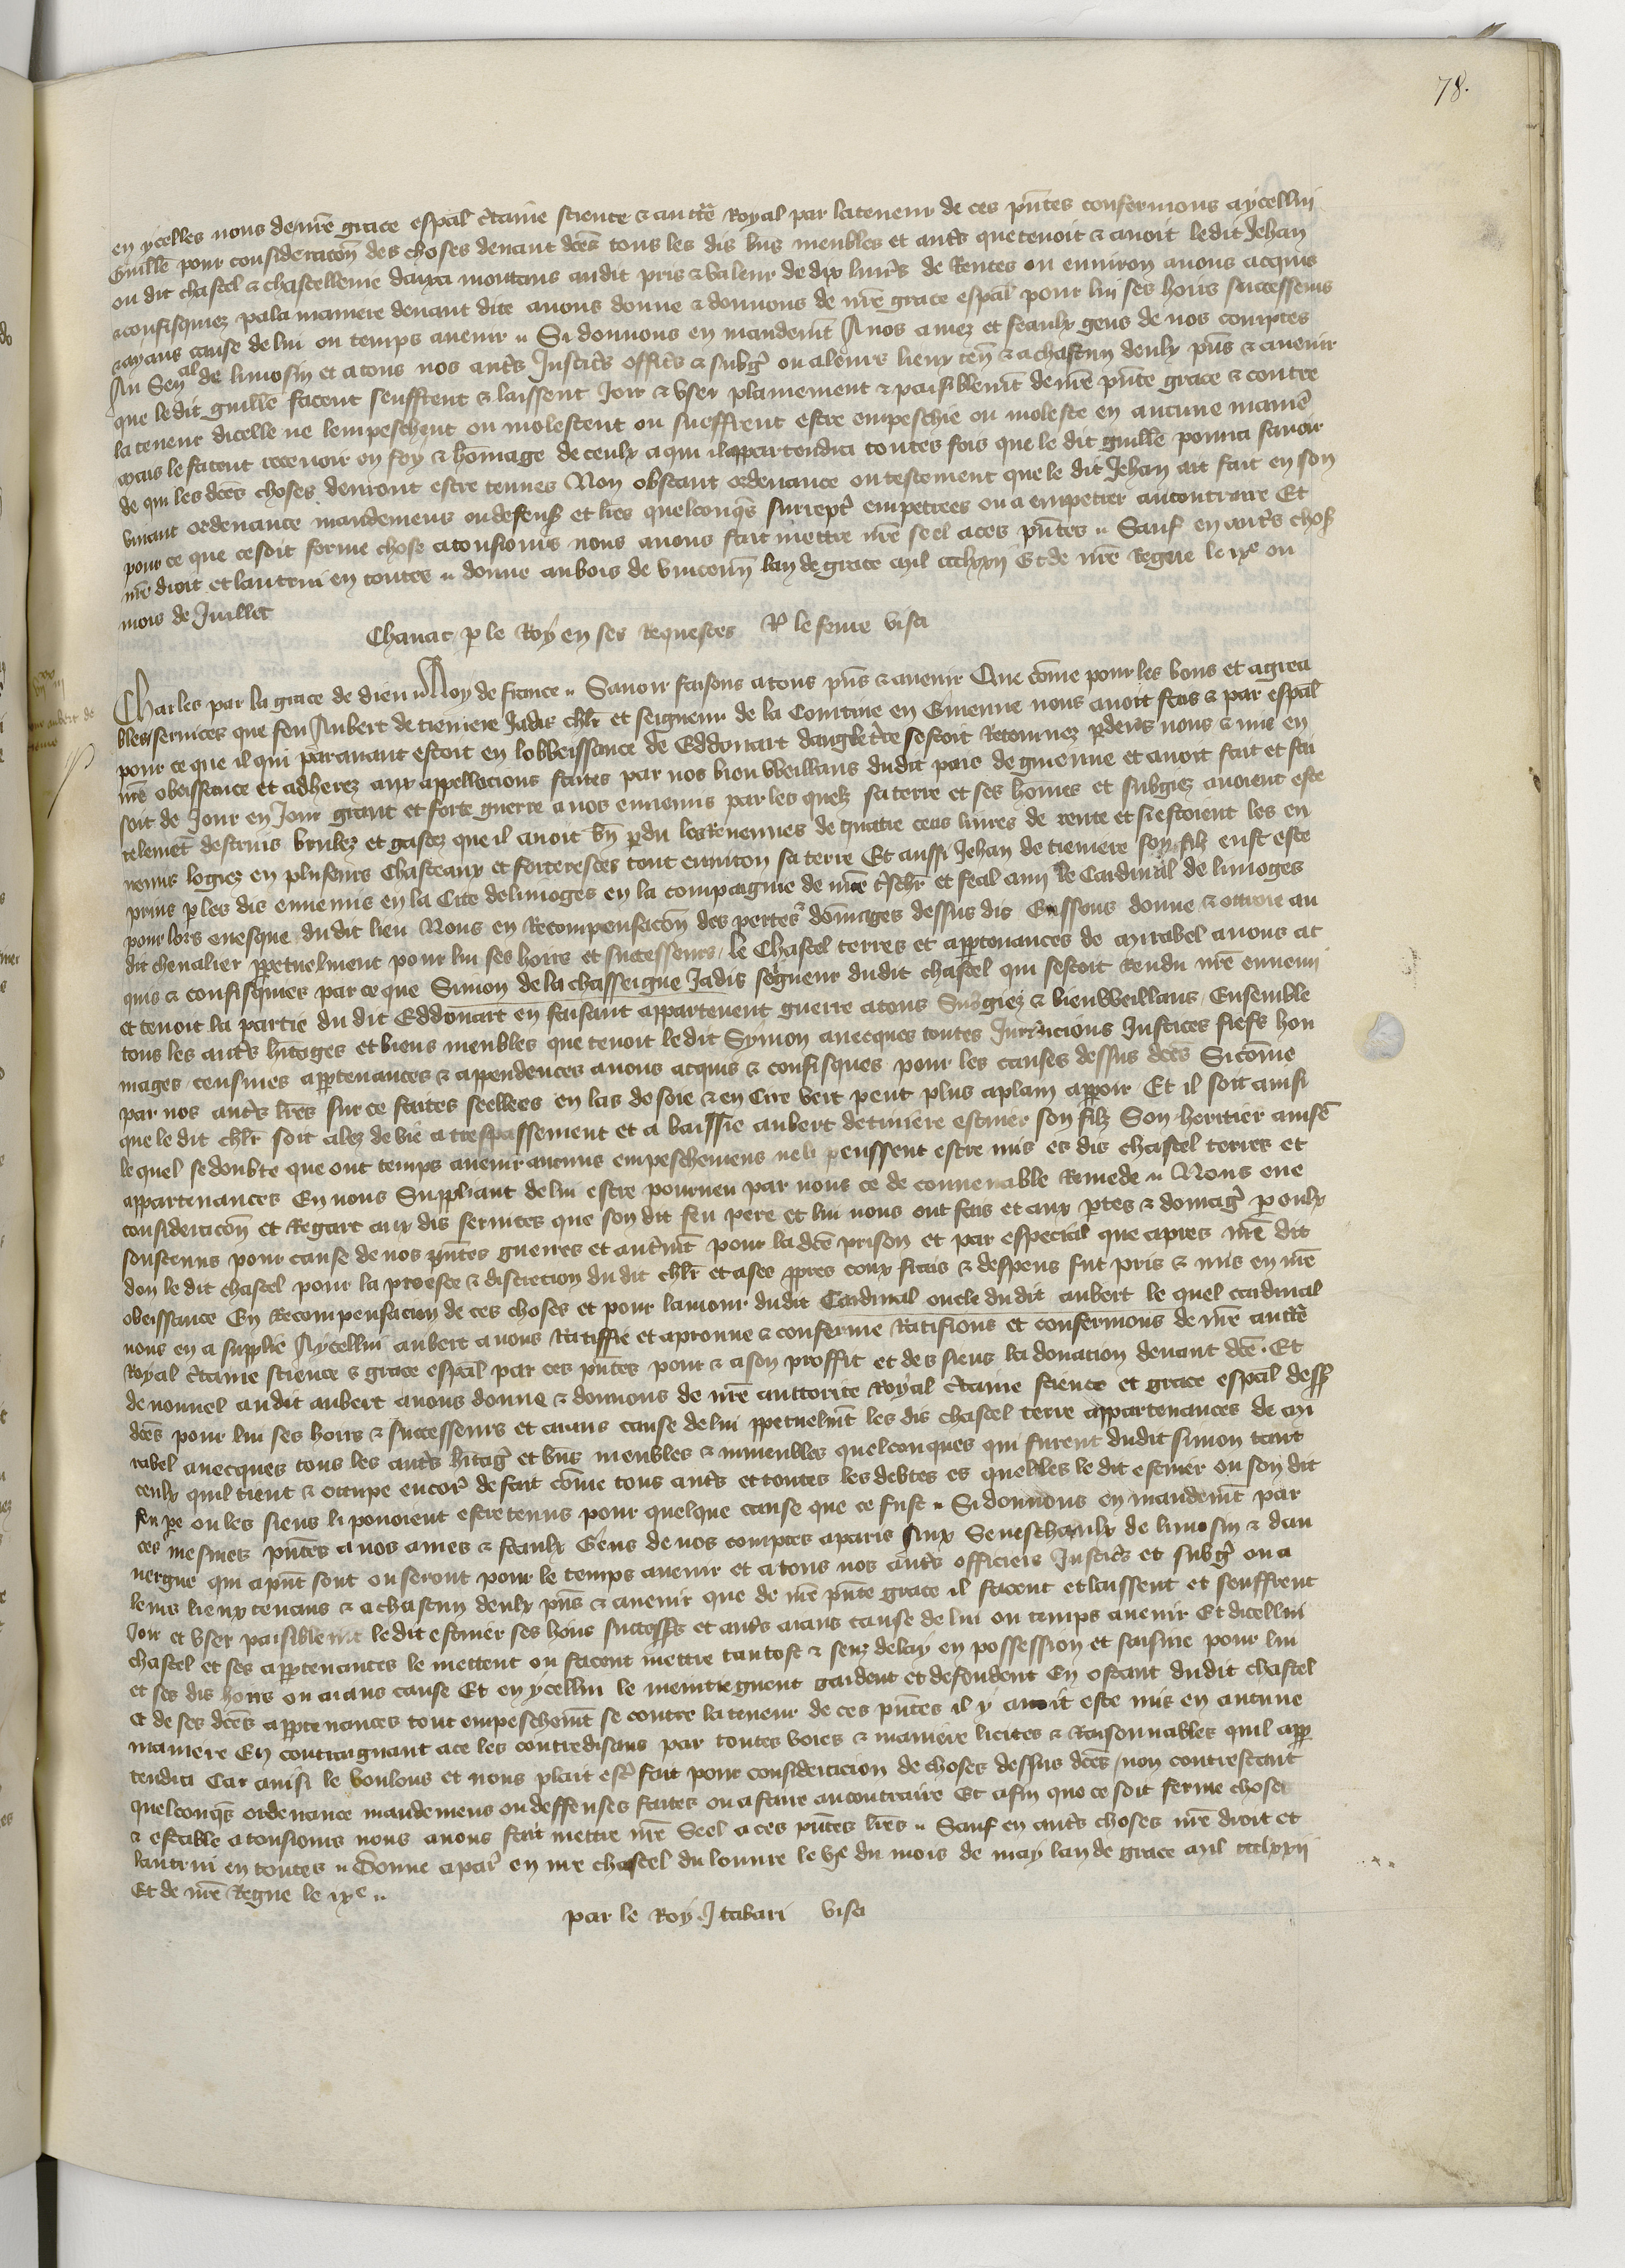 78.
en ycelles nous de nre̅ grace esp̅al c̅taine science & auctẽ Royal par la teneur de ces pñtes confermons a ycellui
Guille̅ pour consideracoñ des choses deuant dc̅es tous les dis bñs meubles et autr̃s que tenoit & auoit le dit Jehan
ou dit chastel & chastellenie daixa montans au dit pris & valeur de dix liur̃s de Rentes ou enuiron auons acquis
& confisquiez pala maniere deuant dite auons donne & donnons de nre̅ grace esp̅al pour lui ses hoirs successeurs
& ayans cause de lui ou temps auenir ‖ Si donnons en mandemt̅ A nos amez et feaulx gens de nos comptes
Au Senal de limosin et a tous nos autr̃s Justicr̃s officr̃s & subgr̃ ou a leurs lieux teñ & a chascun deulx pñs & auenir
que le dit guille̅ facent seuffrent & laissent Joir & vser plainement & paisiblemt̅ de nre̅ pñte grace & contre
la teneur dicelle ne lempeschent ou molestent ou sueffrent estre empeschie ou moleste en aucune manie̅
mais le facent receuoir en foy & ho̅mage de ceulx a qui il appartendra toutes fois que le dit guille̅ pourra sauoir
de qui les dc̅es choses deuront estre tenues Non obstant ordenance ou testement que le dit Jehan ait fait en son
viuant ordenance mandemens ou defens̃ et lr̃es quelconqs̃ surrept̃ empetrees ou a empetrer au contraire Et
pour ce que ce soit ferme chose a tousiours nous auons fait mettre nre̅ seel a ces pñtes ‖ Sauf en autr̃s chos̃
nre̅ droit et lautrui en toutes ‖ donne au bois de vinceñn lan de grace mil ccclxxij Et de nre̅ Regne le ixe ou
mois de Juillet
Chanac p le Roy en ses Requestes Ro le feme visa
Charles par la grace de dieu ‖ Roy de france ‖ Sauoir faisons a tous pñs & auenir Que co̅me pour les bons et agrea
bles seruices que feu Aubert de tieniere Jadis chlr̅ et seigneur de la Courtine en Guienne nous auoit fais & par esp̅al
pour ce que il qui parauant estoit en lobbeissance de Eddouart dangletr̃re sestoit Retournez p deuers nous & mie en
nre̅ obeissance et adherez aux appellacions faites par nos bien vueillans dudit pais de guienne et auoit fait et fai
soit de Jour en Jour grant et forte guerre a nos ennemis par les quelz sa terre et ses ho̅mes et subgiez auoient este
telemet̅ destruis brulez et gastez que il auoit bñ pdu les Reuenues de quatre cens liures de rente et si estoient les en
nemis logiez en plusieurs Chasteaux et forteresces tout enuiron sa terre Et aussi Jehan de tieniere son filz eust este
prins p les dis ennemis en la Cite de limoges en la compaignie de nre̅ tr̃schr̃ et feal amj le Cardinal de limoges
pour lors euesque du dit lieu Nous en Recompensacoñ des pertes & do̅mages dessus dis Eussons donne & ottroie au
dit cheualier ppetuelment pour lui ses hoirs et successeurs le Chastel terres et apptenances de mirabel auons ac
quis & confisquies par ce que Simon de la chasseigne Jadis seigneur du dit chastel qui sestoit Rendu nre̅ ennemi
et tenoit la partie du dit Eddouart en faisant appartement guerre a tous Subgiez & bien vueillans Ensemble
tous les autr̃s hr̃itages et biens meubles que tenoit le dit Symon auecques toutes Jurid̃icions Justices fiefs hom
mages censiues apptenances & appendences auons acquis & confisques pour les causes dessus dc̅es Si co̅me
par nos autr̃s lr̃es sur ce faites seellees en las de soie & en Cire vert peut plus aplain apparoir Et il soit ainsi
que le dit chlr̅ soit alez de vie a trespassement et a baissie aubert de tiniere escuier son filz Son heritier ainsne̅
lequel se doubte que ont temps auenir aucuns empeschemens ne li peussent estre mis es dis chastel terres et
appartenances En nous Suppliant de lui estre pourueu par nous ce de conuenable Remede ‖ Nous eue
consideracoñ et Regart aux dis seruices que son dit feu pere et lui nous ont fais et aux ptes & domagr̃ p eulx
soustenus pour cause de nos pñtes guerres et autr̃mt̅ pour la dc̅e prison et par especial que apres nre̅ dit
don le dit chastel pour la proesce & discrecion du dit chlr̅ et a ses ppres coux frais & despens fut pris & mis en nre̅
obeissance En Recompensacion de ces choses et pour lamour dudit Cardinal oncle du dit aubert le quel cardinal
nous en a supplie A ycellui aubert auons Ratiffie et aprouue & conferme Ratifions et confermons de nre̅ auctẽ
Royal c̅taine science & grace esp̅al par ces pñtes pour & a son proffit et des siens la donation deuant dc̅e. Et
de nouuel au dit aubert auons donne & donnons de nre̅ auttorite Royal c̅taine science et grace esp̅al dess̃
dc̅es pour lui ses hoirs & successeurs et aians cause de lui ppetuelmt̅ les dis chastel terre appartenances de mi
rabel auecques tous les autr̃s hr̃itagr̃ et bñs meubles & inmeubles quelconques qui furent dudit simon tant
ceulx quil tient & occupe encor̃ de fait co̅me tous autr̃s et toutes les debtes es quelles le dit escuier ou son dit
feu pe̅ ou les siens li pouoient estre tenus pour quelque cause que ce fust ‖ Si donnons en mandemt̅ par
ces mesmes pñtes a nos ames & feaulx Gens de nos comptes a paris Aux Seneschaulx de limosin & dau
uergne qui a pñt sont ou seront pour le temps auenir et a tous nos autr̃s officiers Justicr̃s et subgr̃ ou a
leurs lieux tenans & a chascun deulx pñs & auenir que de nre̅ pñte grace il facent et laissent et seuffrent
Joir et vser paisiblemt̅ le dit escuier ses hoirs success̃s et autr̃s aians cause de lui ou temps auenir Et dicellui
chastel et ses apptenances le mettent ou facent mettre tantost & senz delay en possession et saisine pour lui
et ses dis hoirs ou aians cause Et en ycellui le meintiegnent gardent et defendent En ostant dudit chastel
et de ses dc̅es apptenances tout empeschemt̅ se contre la teneur de ces pñtes il y auoit este mis en aucune
maniere En contraignant a ce les contredisans par toutes voies & maniere licites & Raisonnables quil app
tendra Car ainsi le voulons et nous plait estr̃ fait pour consideracion de choses dessus dc̅es non contrestant
quelconqs̃ ordenance mandemens ou deffenses faites ou a faire au contraire Et afin que ce soit ferme choses
& estable a tousiours nous auons fait mettre nre̅ Seel a ces pñtes lr̃es ‖ Sauf en autr̃s choses nre̅ droit et
lautrui en toutes ‖ Donne a par̃ en nre chastel du louure le vje du mois de may lan de grace mil ccclxxij
Et de nre̅ Regne le ixe ‖
par le Roy J tabari visa